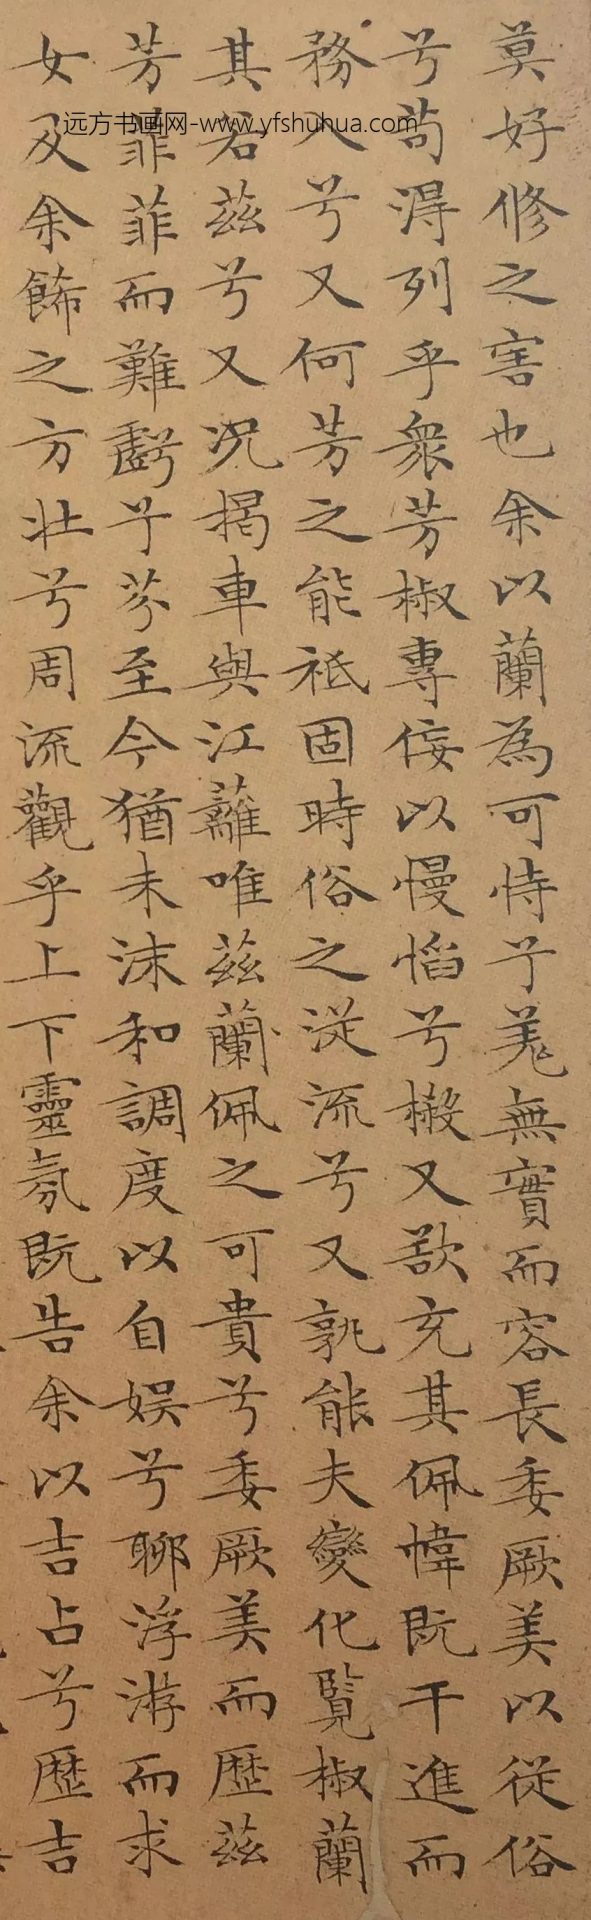 莫好修之害也余以蘭為可恃兮羌無實而容長委厥美以從俗
兮苟得列乎衆芳椒專佞以慢慆兮樧又欲充其佩幃既干進而
務入兮又何芳之能祗固時俗之從流兮又孰能夫變化覽椒蘭
其若茲兮又況揭車與江蘺唯茲蘭佩之可貴兮委厥美而歷茲
芳菲菲而難虧兮芬至今猶未沫和調度以自娛兮聊浮游而求
女及余飾之方壯兮周流觀乎上下靈氛既告余以吉占兮歷吉
远方书画网-www.yfshuhua.com